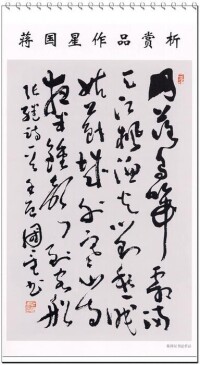 蒋国星作品赏析
月落乌啼霜满
天江枫渔火对愁眠
姑苏城外寒山寺
夜半钟声到客船
张继诗
国星书